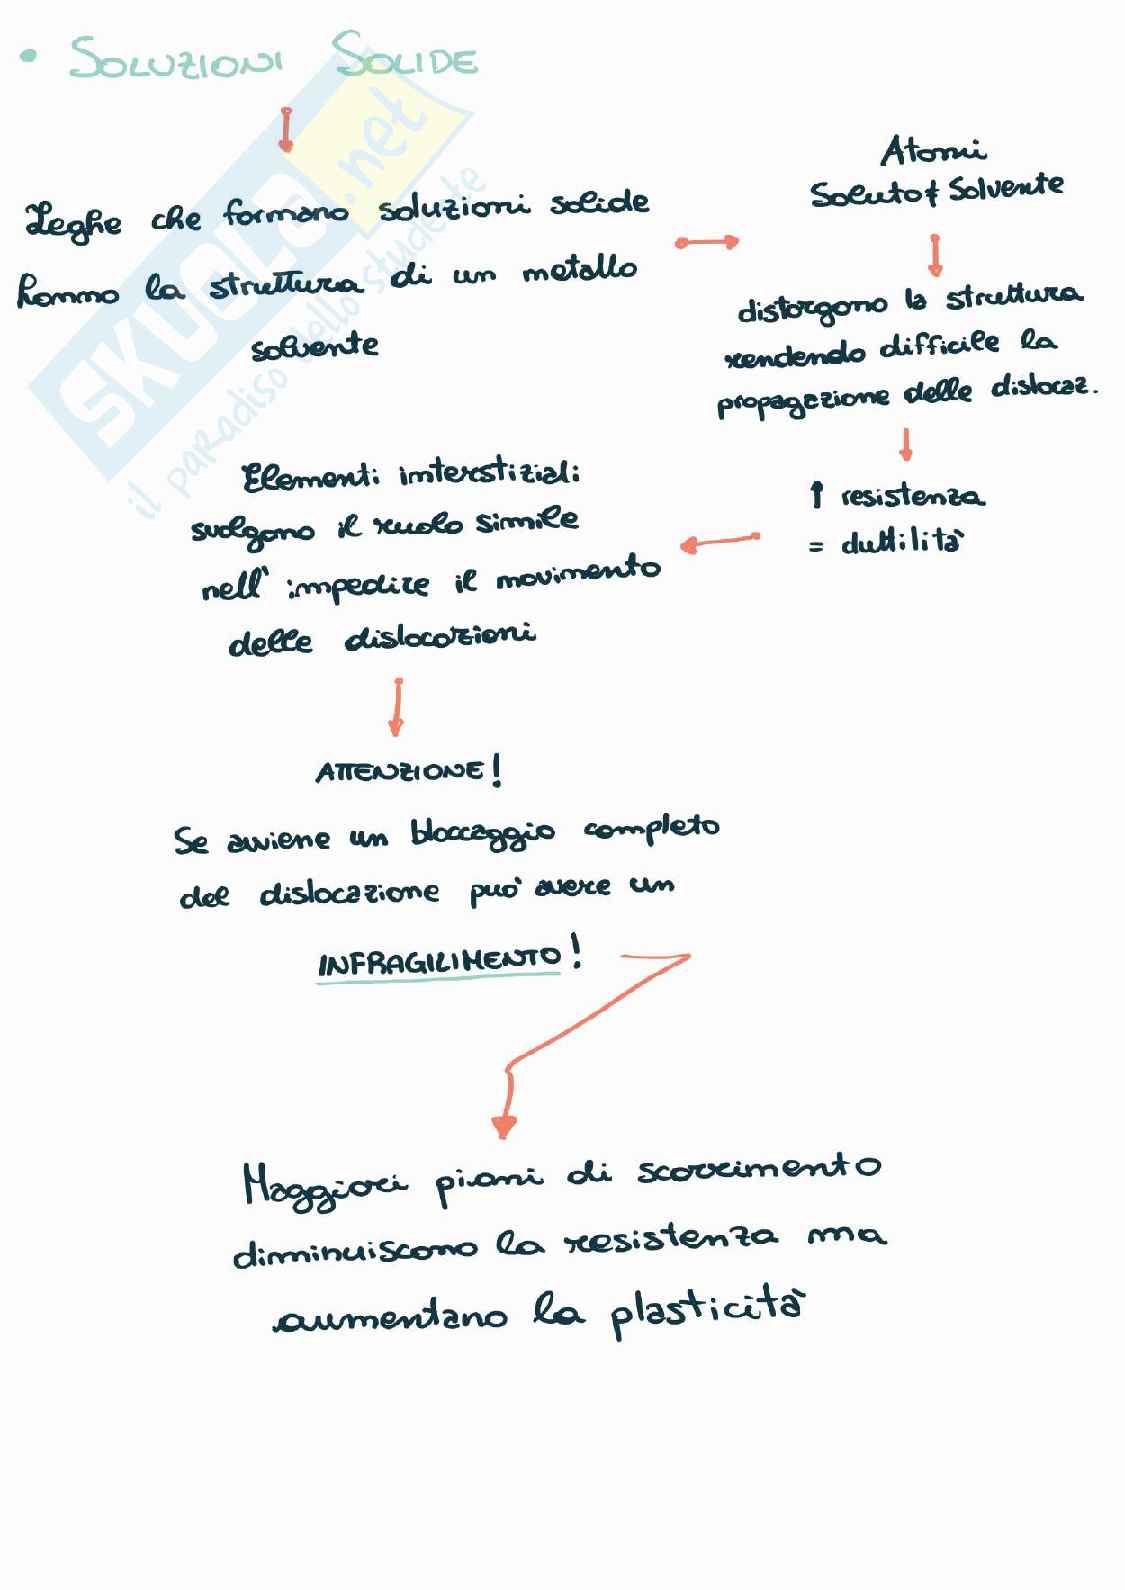 • SOLUZIONI SOLIDE
Leghe che formano soluzioni solide
hanno la struttura di un metallo
solvente
Atomi
Soluto ≠ Solvente
distorgono la struttura
rendendo difficile la
propagazione delle dislocaz.
↑ resistenza
= duttilità
Elementi interstiziali
svolgono il ruolo simile
nell' impedire il movimento
delle dislocazioni
ATTENZIONE!
Se avviene un bloccaggio completo
del dislocazione può avere un
INFRAGILIMENTO!
Maggiori piani di scorrimento
diminuiscono la resistenza ma
aumentano la plasticità
SKUOLA.net
il paradiso dello studente